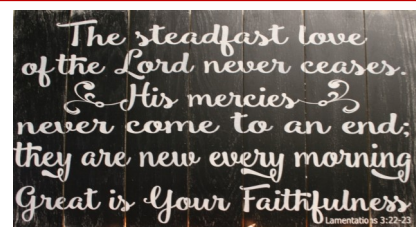 The steadfast love
of the Lord never ceases.
His mercies
never come to an end;
they are new every morning
Great is Your Faithfulness
Lamentations 3:22-23